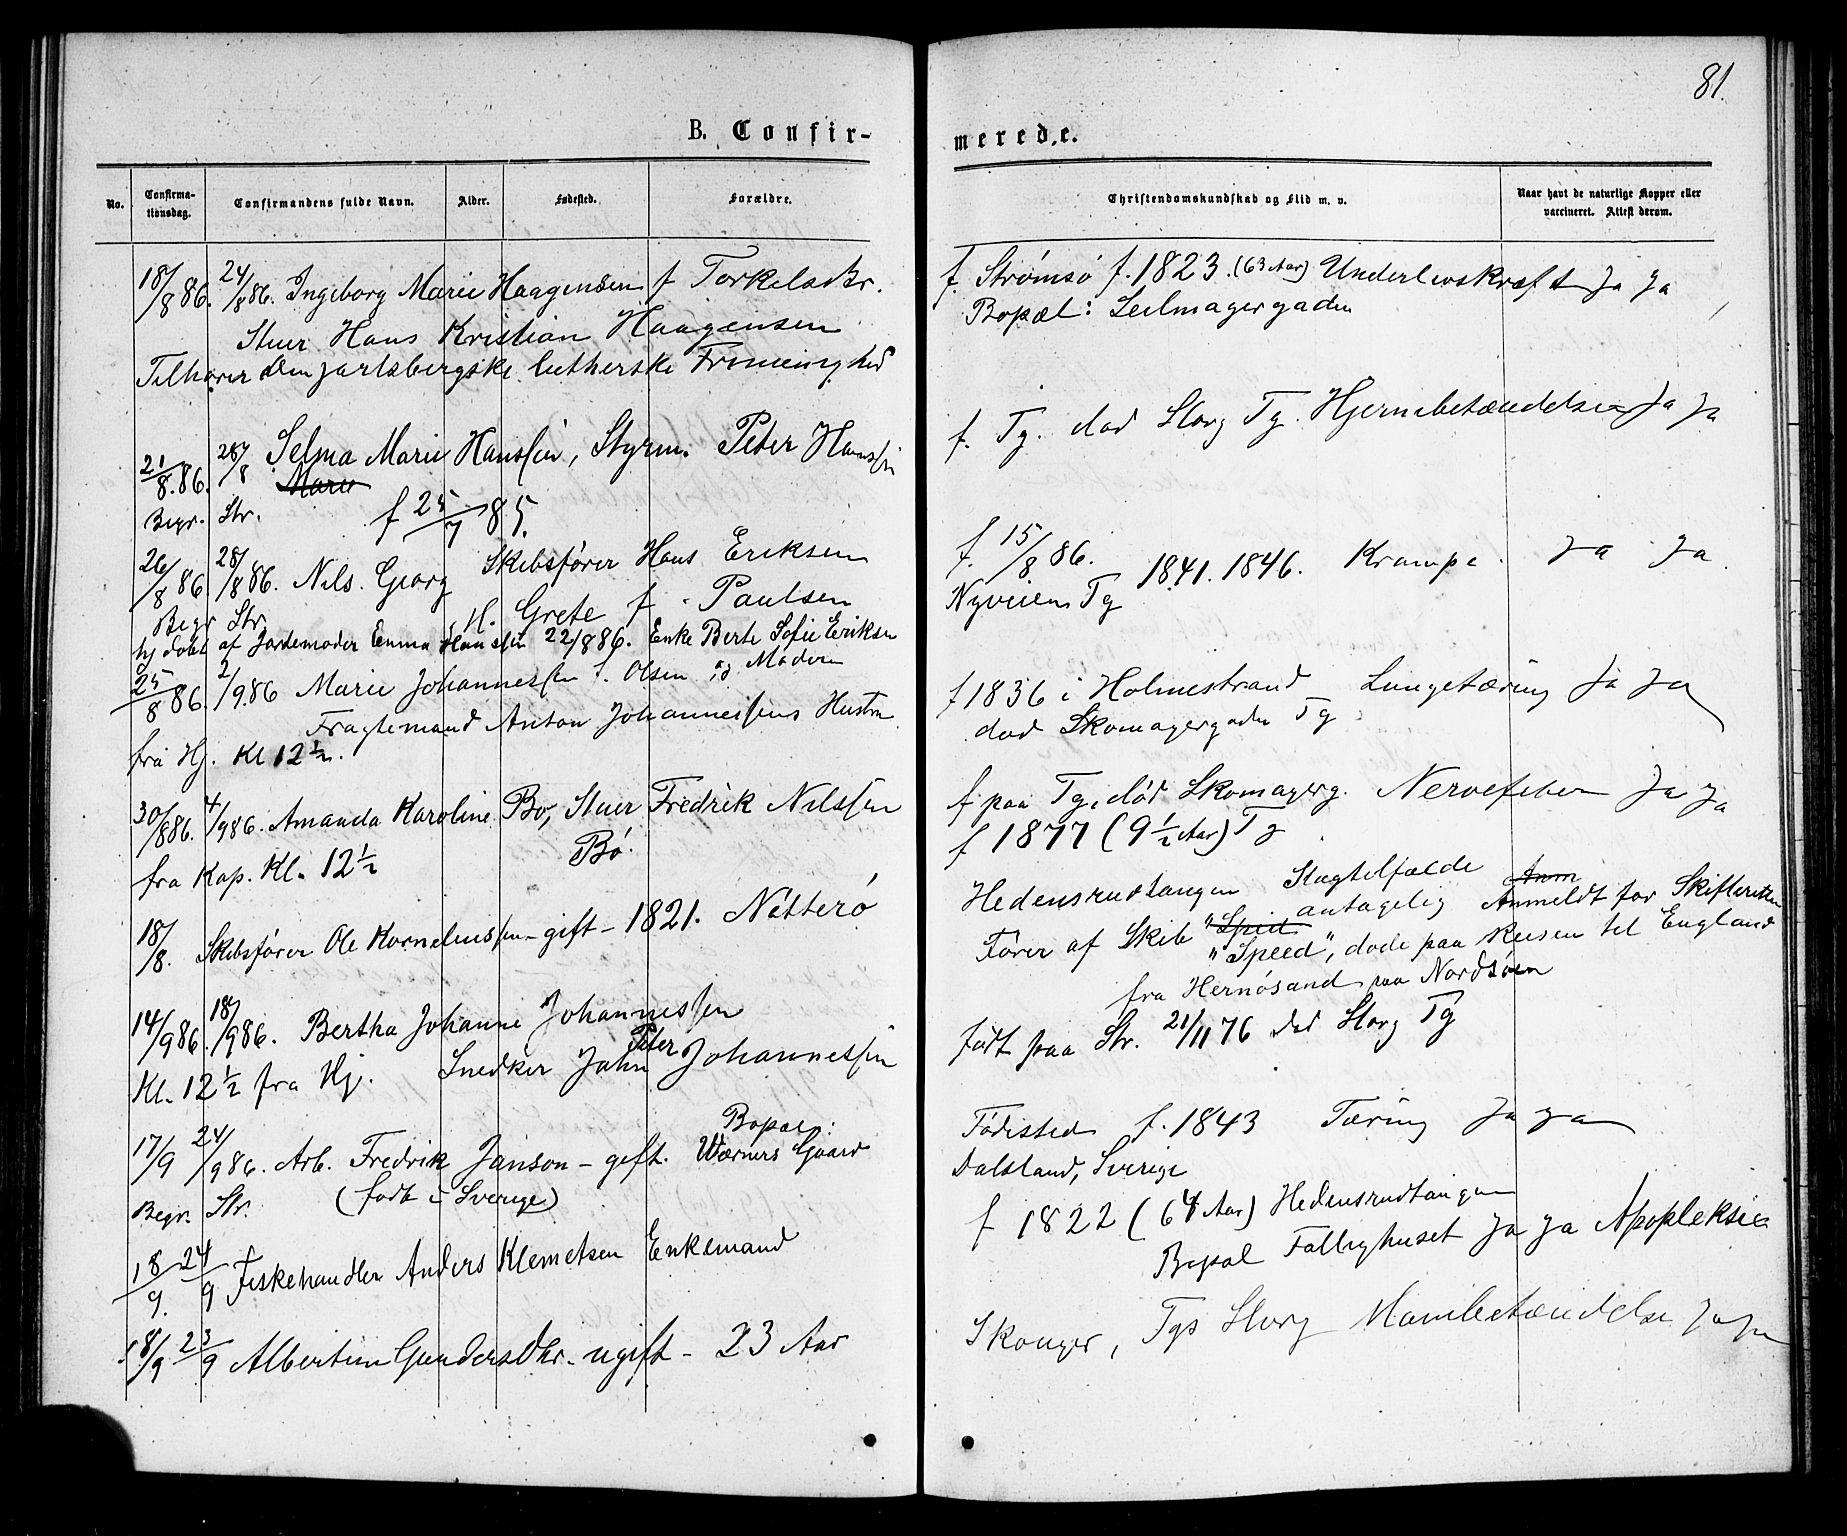 81.
B. Confir-
merede.
No.
Confirma-
tionsdag.
Confirmandens fulde Navn.
Alder.
Fødested.
Forældre.
Christendomskundskab og Flid m. v.
Naar havt de naturlige Kopper eller
vaccineret. Attest derom.
18/8 86. 24/8 86. Ingeborg Marie Haagensen f Torkelsdr.
Stuer Hans Kristian Haagensen
Tilhører den jarlsbergske lutherske Frimenighed
21/8.86. 28/8 Selma Marie Hanssen, Styrm. Peter Hanssen
Marie
Begr. Str. f 25/7 85.
26/8 86 28/8 86. Nils Georg Skibsfører Hans Eriksen
Begr Str. H. Grete f. Paulsen
hj døbt af Jordemoder Emma Hanssen 22/8 86. Enke Berte Sofie Eriksen
25/8 86. 2/9.86 Marie Johannessen f. Olsen og Madern
Fragtemand Anton Johannessens Hustru
fra Hj. Kl 12 1/2.
30/8 86. 4/9 86. Amanda Karoline Bo, Stuer Fredrik Nilssen
fra Kap. Kl. 12 1/2 Bö.
18/8. Skibsfører Ole Kornelinssen - gift - 1821. Nötterö
14/9 86. 18/9 86. Bertha Johanne Johannessen
Peter
Kl. 12 1/2 fra Kj. Snedker John Johannessen
Bopæl:
17/9 24/9 86. Arb. Fredrik Janson - gift. Wærners Gaard
Begr. Str. (født i Sverige)
18/9. 24/9 Fiskehandler Anders Klemetsen Enkemand
18/9 23/9 Albertine Gundersdtr. ugift - 23 Aar
f. Strömsö f. 1823. (63 Aar) Underlivskræft Ja Ja
Bopæl: Seilmagergaden
f. Tg. død Storg Tg. Hjernebetændelse Ja Ja
f. 15/8 86. 1841. 1846. Krampe. Ja Ja
Nyveien Tg
f 1836 i Holmestrand Lungetæring Ja Ja
død Skomagergaden Tg
f paa Tg. død Skomagerg. Nervefeber Ja Ja
f 1877 (9 1/2 Aar) Tg
Hedensrudtangen Slagtilfælde Anm
antagelig Anmeldt for Skifteretten
Fører af Skib "Spid
"Speed", døde paa Reisen til England
fra Hernösand paa Nordsøen
født paa Str. 21/11 76 død Storg Tg
Fødested f. 1843 Tæring Ja Ja
Dalsland, Sverige
f 1822 (64 Aar) Hedensrudtangen
Bopæl Fattighuset Ja Ja Apopleksie
Skonger, Tgs Storg Ja Ja